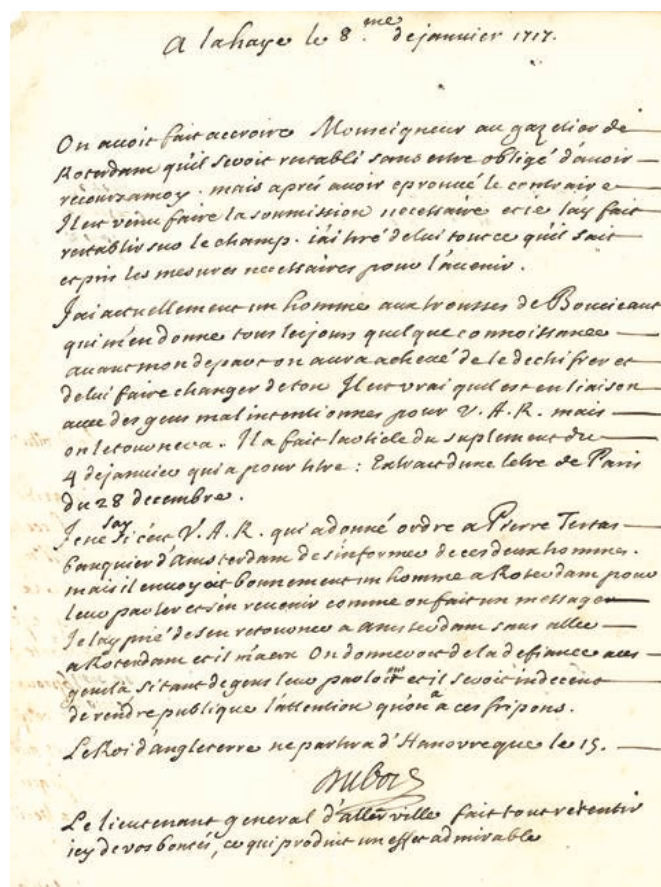 A lahaye le 8.me de janvier 1717.
On avoit fait accroire Monseigneur au gazetier de
Roterdam qu'il seroit retabli sans estre obligé d'avoir
recours a moy. mais aprés avoir eprouvé le contraire
Il est venu faire la soumission necessaire et ie l'ay fait
restablir sur le champ. i'ai tiré de lui tout ce qu'il sait
et pris les mesures necessaires pour l'avenir.
J'ai actuellement un homme aux trousses de
qui m'en donne tous les jours quelque connoissance
avant mon depart on aura achevé de le dechifrer et
de lui faire changer de ton Il est vrai quil est en liaison
avec des gens mal intentionnes pour V. A. R. mais
on le tournera. Il a fait larticle du suplement du
4 de janvier qui a pour titre : Extrait d'une letre de Paris
du 28 decembre.
Je ne say si c'est V. A. R. qui a donné ordre a Pierre Tertas
banquier d'Amsterdam de s'informer de ces deux hommes.
mais il envoyoit bonnement un homme a Roterdam pour
leur parler et s'en revenir comme on fait un messager
Je l'ay prié de s'en retourner a amsterdam sans aller
a Roterdam et il m'a cru On donneroit de la defiance a ces
gens la si tant de gens leur parloient et il seroit indecent
de rendre publique l'attention qu'on a a ces fripons.
Le Roi d'angleterre ne partira d'Hanovre que le 15.
Dubois
Le lieutenant general d'allerville fait tout retentir
icy de vos bontés, ce qui produit un effet admirable